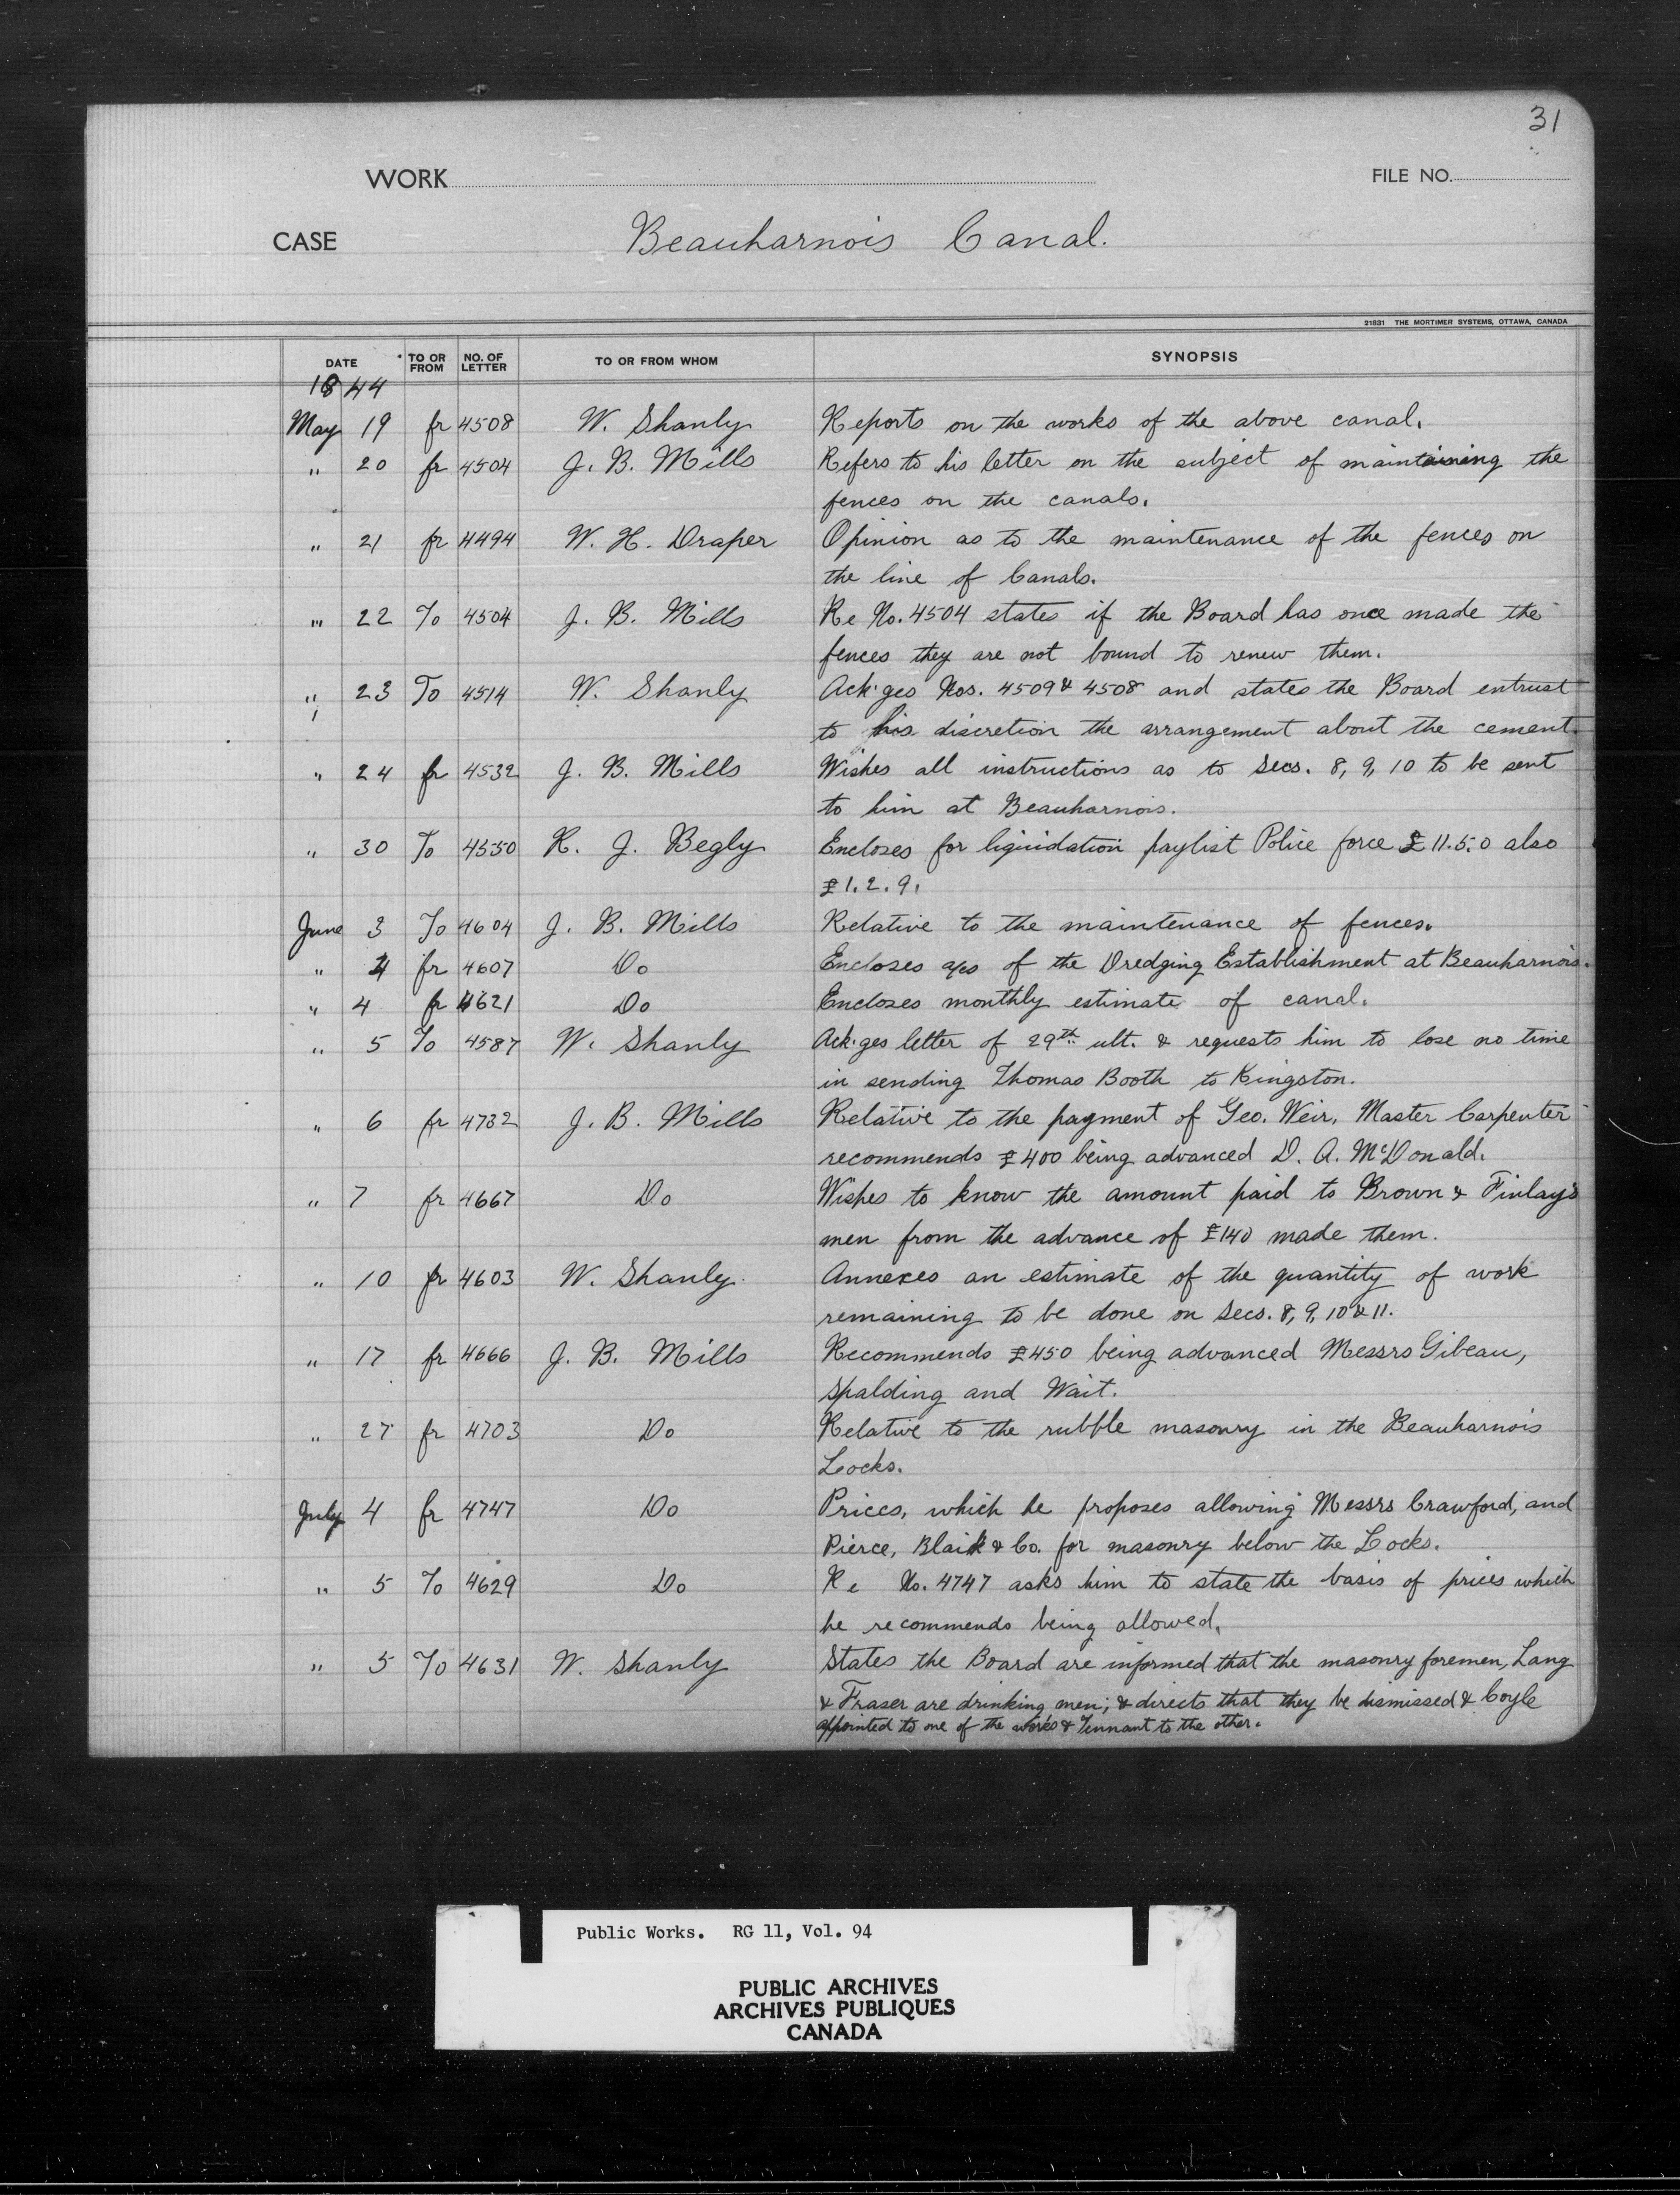 31
WORK
FILE NO.
CASE Beauharnois Canal.
21831 THE MORTIMER SYSTEMS, OTTAWA, CANADA
DATE TO OR FROM NO. OF LETTER TO OR FROM WHOM SYNOPSIS
1844
May 19 fr 4508 W. Shanly Reports on the works of the above canal.
" 20 fr 4504 J. B. Mills Refers to his letter on the subject of maintaining the
fences on the canals.
" 21 fr 4494 W. H. Draper Opinion as to the maintenance of the fences on
the line of Canals.
" 22 To 4504 J. B. Mills Re No. 4504 states if the Board has once made the
fences they are not bound to renew them.
" 23 To 4514 W. Shanly Ack'ges Nos. 4509 & 4508 and states the Board entrust
to his discretion the arrangement about the cement.
" 24 fr 4532 J. B. Mills Wishes all instructions as to Secs. 8, 9, 10 to be sent
to him at Beauharnois.
" 30 To 4550 R. J. Begly Encloses for liquidation paylist Police force £11.5.0 also
£1.2.9.
June 3 To 4604 J. B. Mills Relative to the maintenance of fences.
" 4 fr 4607 Do Encloses a/cs of the Dredging Establishment at Beauharnois.
" 4 fr 4621 Do Encloses monthly estimate of canal.
" 5 To 4587 W. Shanly Ack'ges letter of 29th ult. & requests him to lose no time
in sending Thomas Booth to Kingston.
" 6 fr 4732 J. B. Mills Relative to the payment of Geo. Weir, Master Carpenter
recommends £400 being advanced D. A. McDonald.
" 7 fr 4667 Do Wishes to know the amount paid to Brown & Finlay's
men from the advance of £140 made them.
" 10 fr 4603 W. Shanly. Annexes an estimate of the quantity of work
remaining to be done on Secs. 8, 9, 10 & 11.
" 17 fr 4666 J. B. Mills Recommends £450 being advanced Messrs Gibeau,
Spalding and Wait.
" 27 fr 4703 Do Relative to the rubble masonry in the Beauharnois
Locks.
July 4 fr 4747 Do Prices, which he proposes allowing Messrs Crawford, and
Pierce, Blaik & Co. for masonry below the Locks.
" 5 To 4629 Do Re No. 4747 asks him to state the basis of prices which
he recommends being allowed.
" 5 To 4631 W. Shanly States the Board are informed that the masonry foremen, Lang
& Fraser are drinking men; & directs that they be dismissed & Coyle
appointed to one of the works & Tennant to the other.
Public Works. RG 11, Vol. 94
PUBLIC ARCHIVES
ARCHIVES PUBLIQUES
CANADA